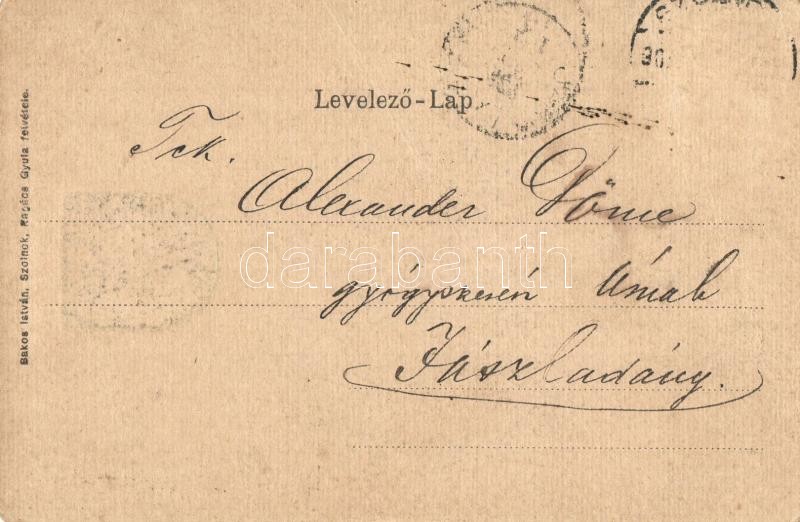 Levelező-Lap
Tck.
Alexander Döme
gyógyszerész úrnak
Jászladány.
Bakos István, Szolnok, Ragács Gyula felvétele.
darabanth